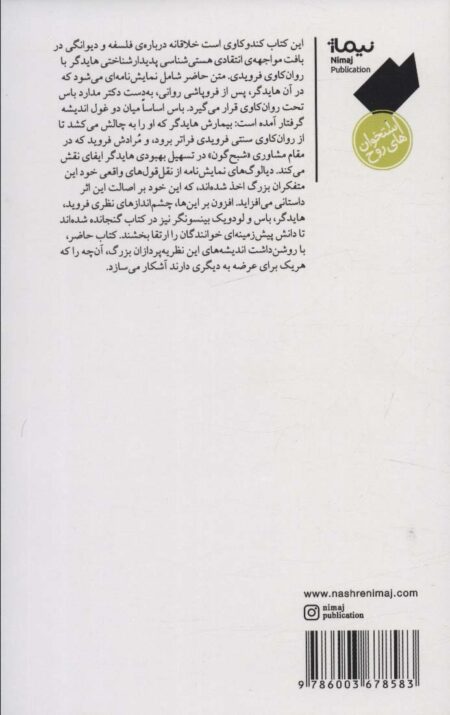 نیماژ
Nimaj
Publication
استخوان
های روح
این کتاب کندوکاوی است خلاقانه درباره‌ی فلسفه و دیوانگی در
بافت مواجهه‌ی انتقادی هستی‌شناسی پدیدارشناختی هایدگر با
روان‌کاوی فرویدی. متن حاضر شامل نمایش‌نامه‌ای می‌شود که
در آن هایدگر، پس از فروپاشی روانی، به‌دست دکتر مدارد باس
تحت روان‌کاوی قرار می‌گیرد. باس اساساً میان دو غول اندیشه
گرفتار آمده است: بیمارش هایدگر که او را به چالش می‌کشد تا
از روان‌کاوی سنتی فرویدی فراتر برود، و مُرادش فروید که در
مقام مشاوری «شبح‌گون» در تسهیل بهبودی هایدگر ایفای نقش
می‌کند. دیالوگ‌های نمایش‌نامه از نقل‌قول‌های واقعی خود این
متفکران بزرگ اخذ شده‌اند، که این خود بر اصالت این اثر
داستانی می‌افزاید. افزون بر این‌ها، چشم‌اندازهای نظری فروید،
هایدگر، باس و لودویک بینسونگر نیز در کتاب گنجانده شده‌اند
تا دانش پیش‌زمینه‌ای خوانندگان را ارتقا ببخشند. کتاب حاضر،
با روشن‌داشت اندیشه‌های این نظریه‌پردازان بزرگ، آن‌چه را که
هریک برای عرضه به دیگری دارند آشکار می‌سازد.
www.nashrenimaj.com
nimaj
publication
9 786003 678583